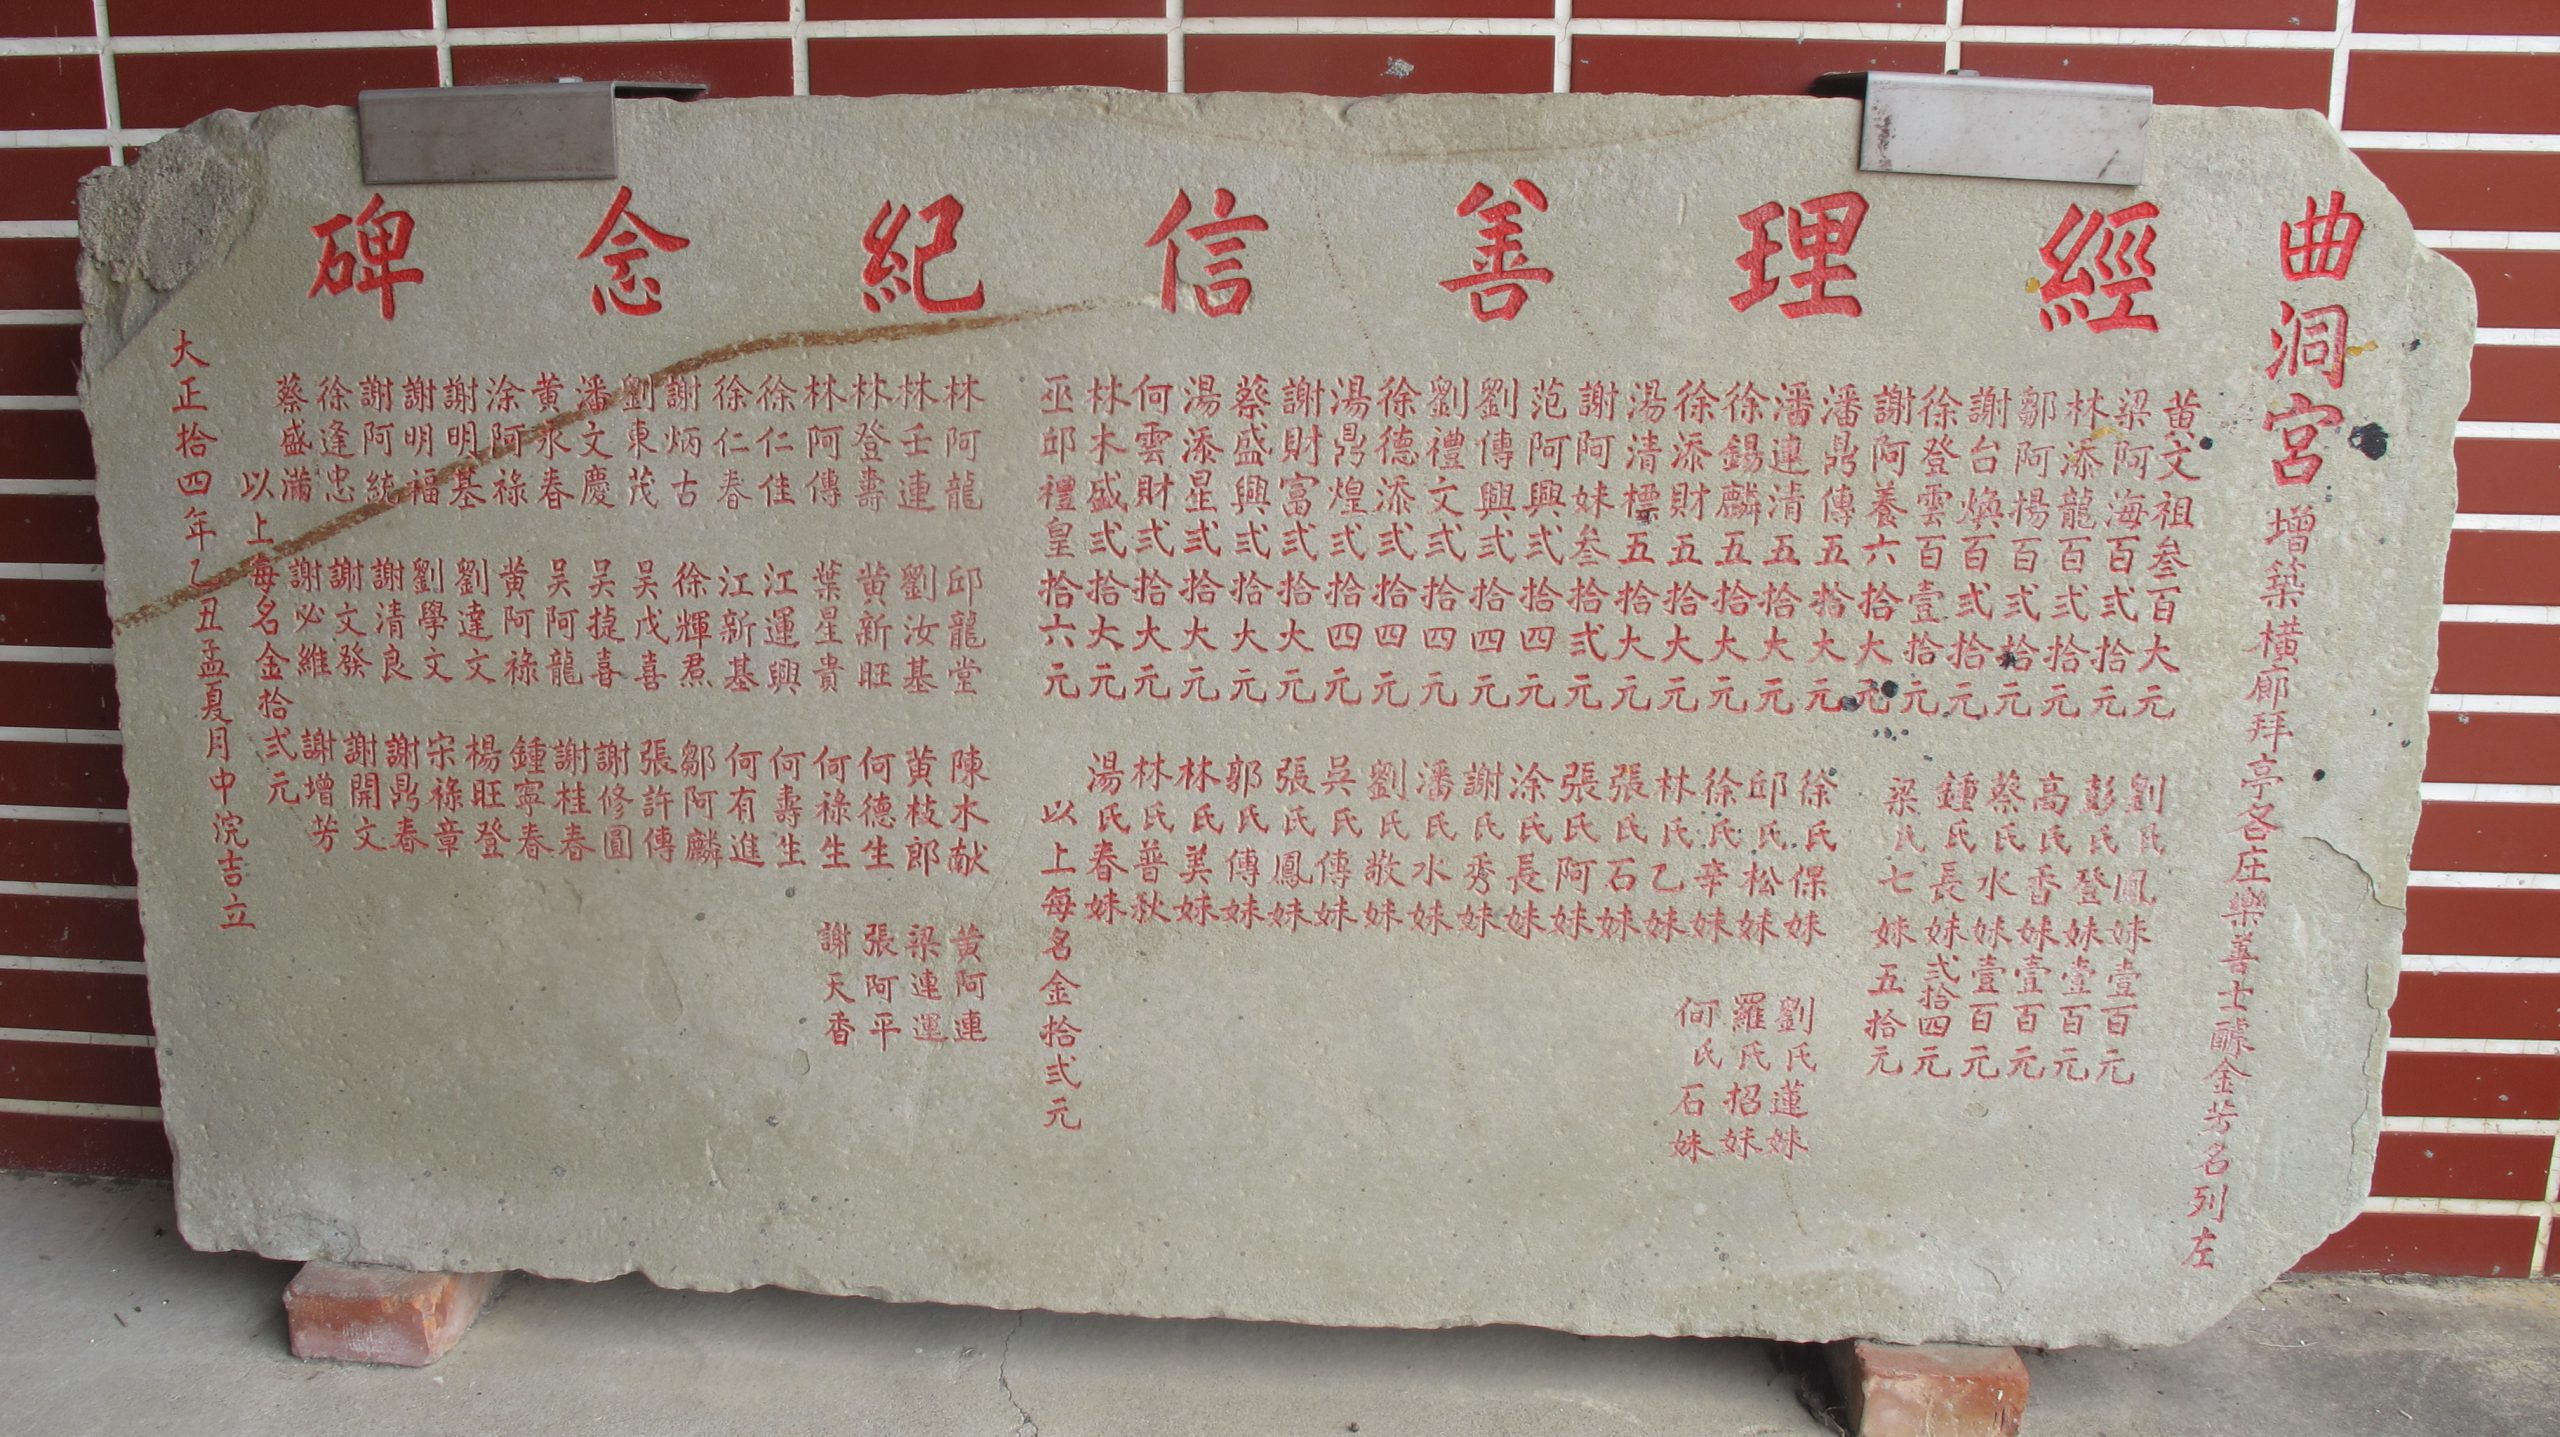 經理善信紀念碑
曲洞宮增築橫廊拜亭各庄樂善士醵金芳名列左
黃文祖叁百大元
梁阿海百弍拾元
林添龍百弍拾元
鄒阿揚百弍拾元
謝台煥百弍拾元
徐登雲百壹拾元
謝阿養六拾大元
潘鼎傳五拾大元
潘連清五拾大元
徐錫麟五拾大元
徐添財五拾大元
湯清標五拾大元
謝阿妹叁拾弍元
范阿興弍拾四元
劉傳興弍拾四元
劉禮文弍拾四元
徐德添弍拾四元
湯鼎煌弍拾四元
謝財富弍拾大元
蔡盛興弍拾大元
湯添星弍拾大元
何雲財弍拾大元
林木盛弍拾大元
巫邱禮皇拾六元
劉氏鳳妹壹百元
彭氏登妹壹百元
高氏香妹壹百元
蔡氏水妹壹百元
鍾氏長妹弍拾四元
梁氏七妹五拾元
徐氏保妹
邱氏松妹
徐氏辛妹
林氏乙妹
張氏石妹
張氏阿妹
涂氏長妹
謝氏秀妹
潘氏水妹
劉氏敬妹
吳氏傳妹
張氏鳳妹
郭氏傳妹
林氏美妹
林氏普秋
湯氏春妹
劉氏蓮妹
羅氏招妹
何氏石妹
以上每名金拾弍元
林阿龍
林壬連
林登壽
林阿傳
徐仁佳
徐仁春
謝炳古
劉東茂
潘文慶
黃永春
涂阿祿
謝明基
謝明福
謝阿統
徐逢忠
蔡盛滿
邱龍堂
劉汝基
黃新旺
葉星貴
江運興
江新基
徐輝焄
吳戊喜
吳捷喜
吳阿龍
黃阿祿
劉達文
劉學文
謝清良
謝文發
謝必維
陳水献
黃枝郎
何德生
何祿生
何壽生
何有進
鄒阿麟
張許傳
謝修圓
謝桂春
鍾寧春
楊旺登
宋祿章
謝鼎春
謝開文
謝增芳
黃阿連
梁連運
張阿平
謝天香
以上每名金拾弍元
大正拾四年乙丑孟夏月中浣吉立